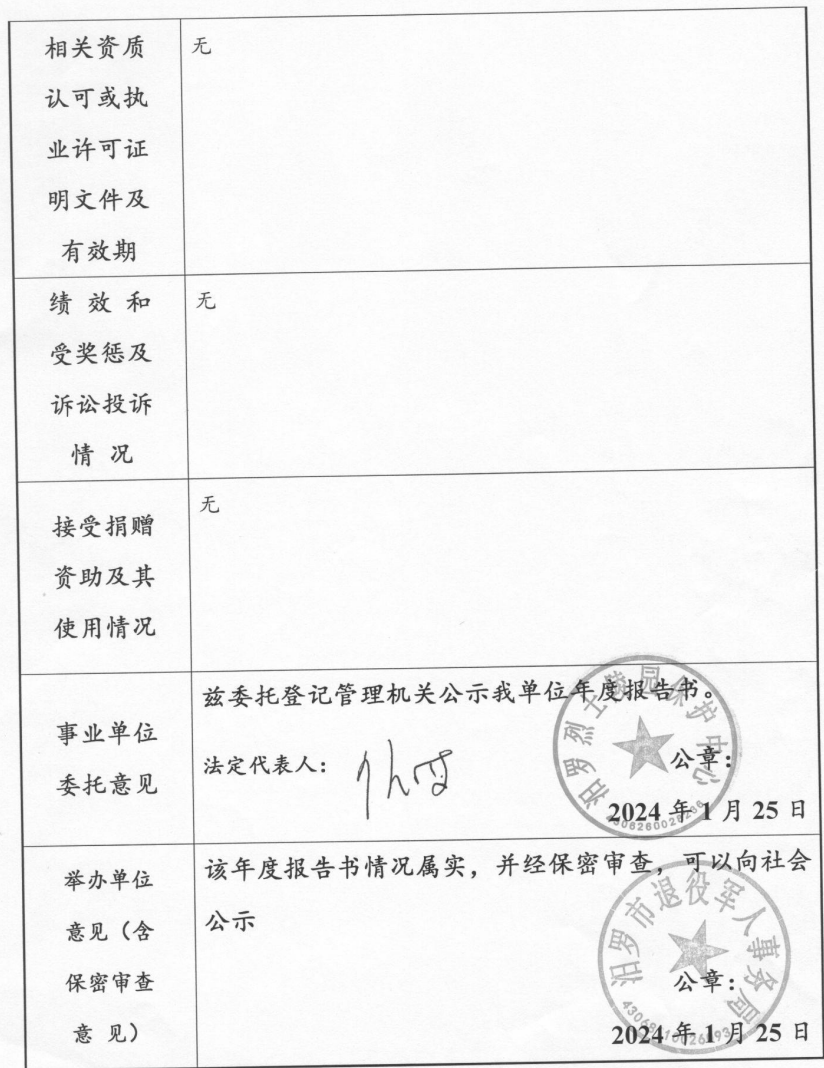 相关资质
认可或执
业许可证
明文件及
有效期
无
绩 效 和
受奖惩及
诉讼投诉
情 况
无
接受捐赠
资助及其
使用情况
无
事业单位
委托意见
兹委托登记管理机关公示我单位年度报告书。
法定代表人：
公章：
2024 年 1 月 25 日
汨罗烈士陵园保护中心
举办单位
意见（含
保密审查
意 见）
该年度报告书情况属实，并经保密审查，可以向社会
公示
公章：
2024 年 1 月 25 日
汨罗市退役军人事务局